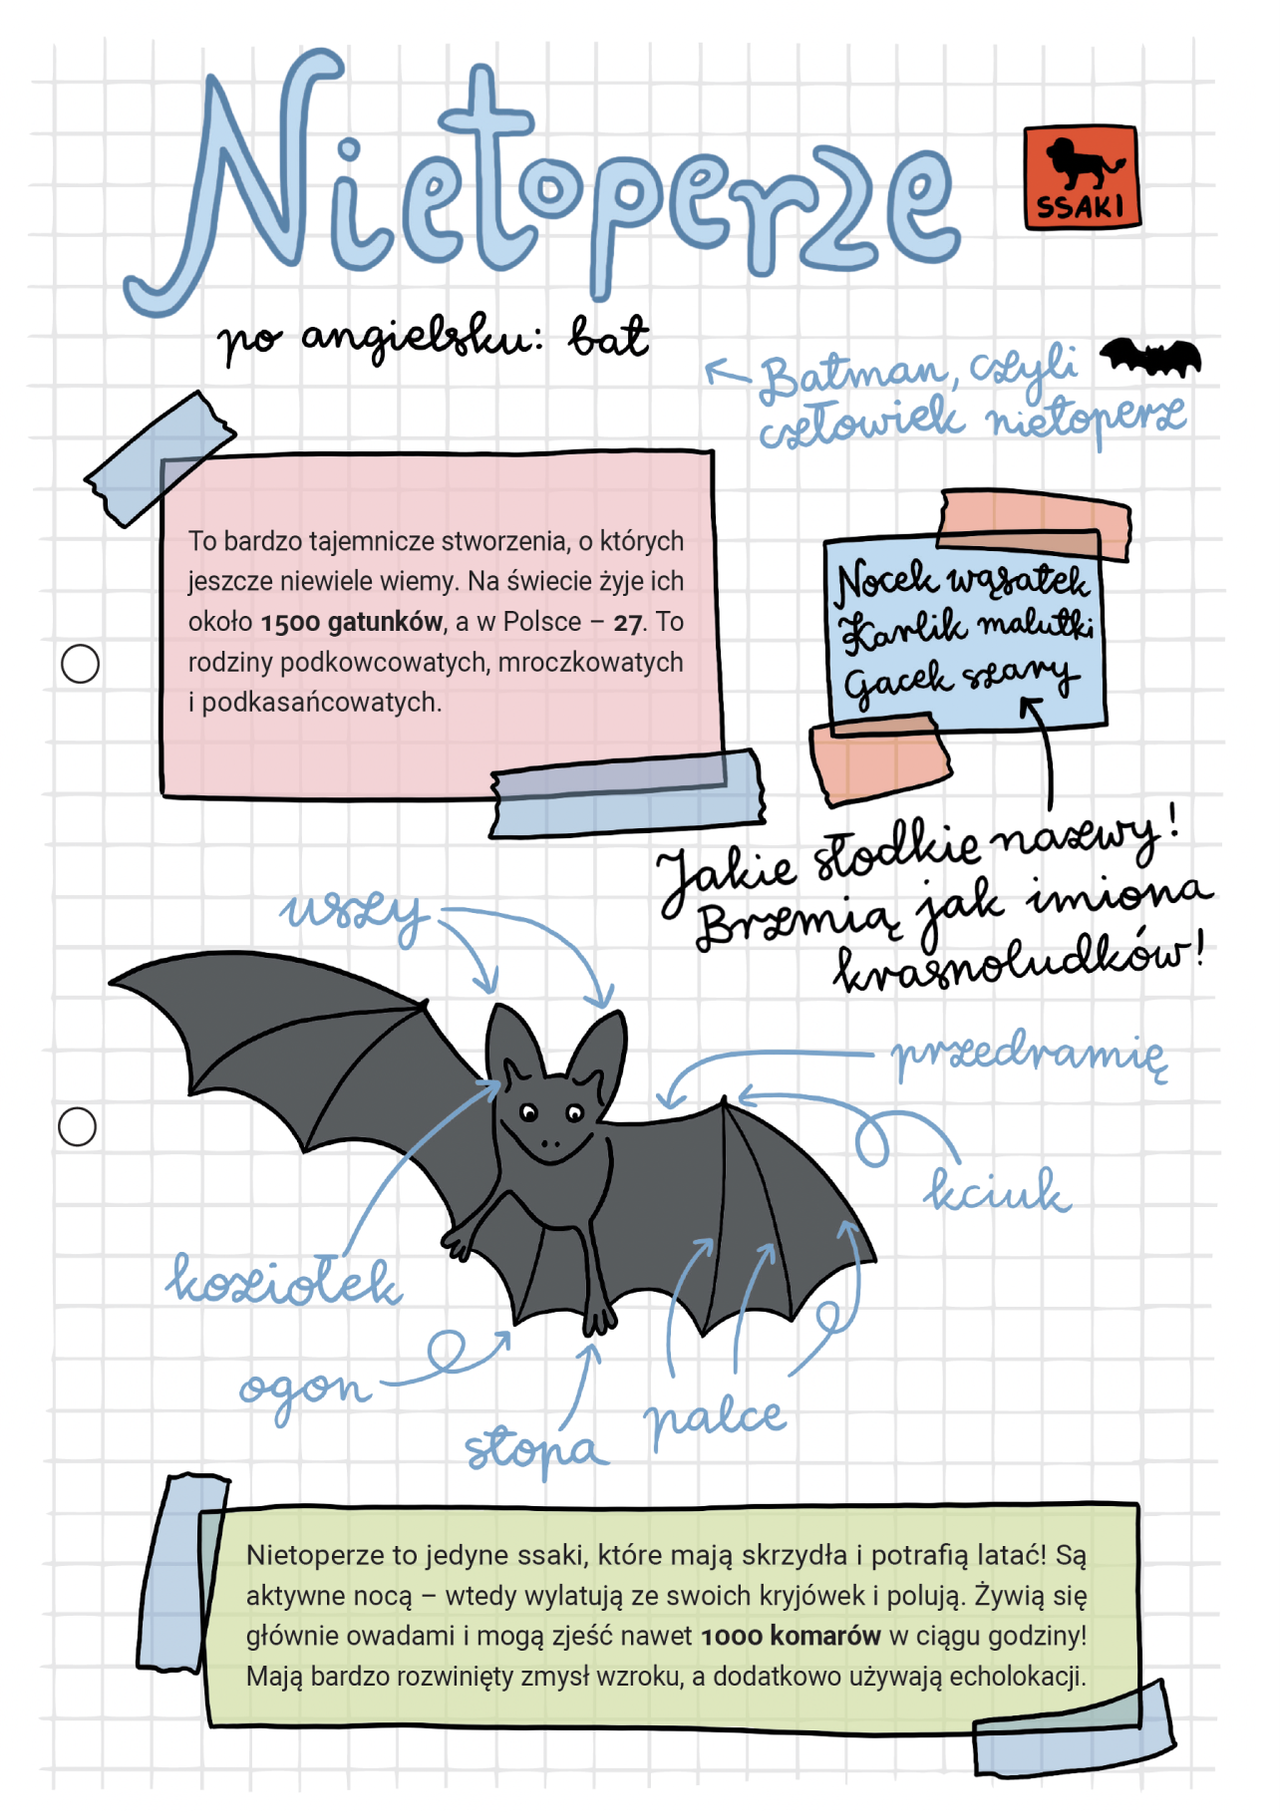 Nietoperze
SSAKI
po angielsku: bat
Batman, czyli
człowiek nietoperz
To bardzo tajemnicze stworzenia, o których
jeszcze niewiele wiemy. Na świecie żyje ich
około 1500 gatunków, a w Polsce – 27. To
rodziny podkowcowatych, mroczkowatych
i podkasańcowatych.
Nocek wąsatek
Karlik malutki
Gacek szary
Jakie słodkie nazwy!
Brzmią jak imiona
krasnoludków!
uszy
przedramię
kciuk
koziołek
ogon
stopa
palce
Nietoperze to jedyne ssaki, które mają skrzydła i potrafią latać! Są
aktywne nocą – wtedy wylatują ze swoich kryjówek i polują. Żywią się
głównie owadami i mogą zjeść nawet 1000 komarów w ciągu godziny!
Mają bardzo rozwinięty zmysł wzroku, a dodatkowo używają echolokacji.